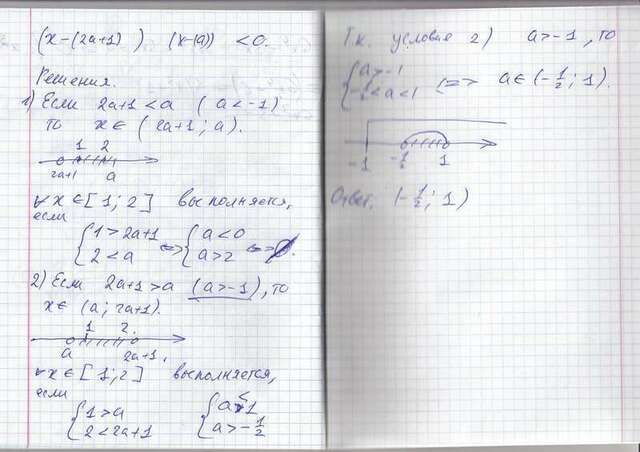 (x-(2a+1)) (x-(a)) <0.
Решения.
1) Если 2a+1 < a (a<-1)
то x∈(2a+1; a).
1 2
2a+1 a
∀x∈[1;2] выполняется,
если
{1>2a+1 <=> {a<0 <=> ∅.
{2<a {a>2
2) Если 2a+1>a (a>-1), то
x∈(a; 2a+1).
1 2.
a 2a+1.
∀x∈[1;2] выполняется,
если
{1>a {a<1
{2<2a+1 {a>-1/2
Т.к. условие 2) a>-1, то
{a>-1 <=> a∈(-1/2; 1).
{-1/2<a<1
-1 -1/2 1
Ответ. (-1/2; 1)